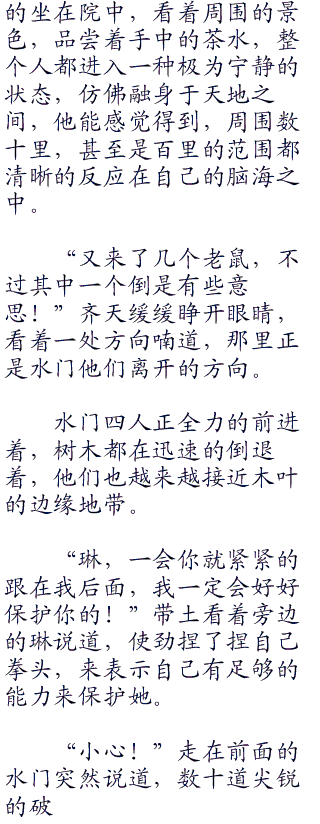 的坐在院中，看着周围的景
色，品尝着手中的茶水，整
个人都进入一种极为宁静的
状态，仿佛融身于天地之
间，他能感觉得到，周围数
十里，甚至是百里的范围都
清晰的反应在自己的脑海之
中。
“又来了几个老鼠，不
过其中一个倒是有些意
思！”齐天缓缓睁开眼睛，
看着一处方向喃道，那里正
是水门他们离开的方向。
水门四人正全力的前进
着，树木都在迅速的倒退
着，他们也越来越接近木叶
的边缘地带。
“琳，一会你就紧紧的
跟在我后面，我一定会好好
保护你的！”带土看着旁边
的琳说道，使劲捏了捏自己
拳头，来表示自己有足够的
能力来保护她。
“小心！”走在前面的
水门突然说道，数十道尖锐
的破